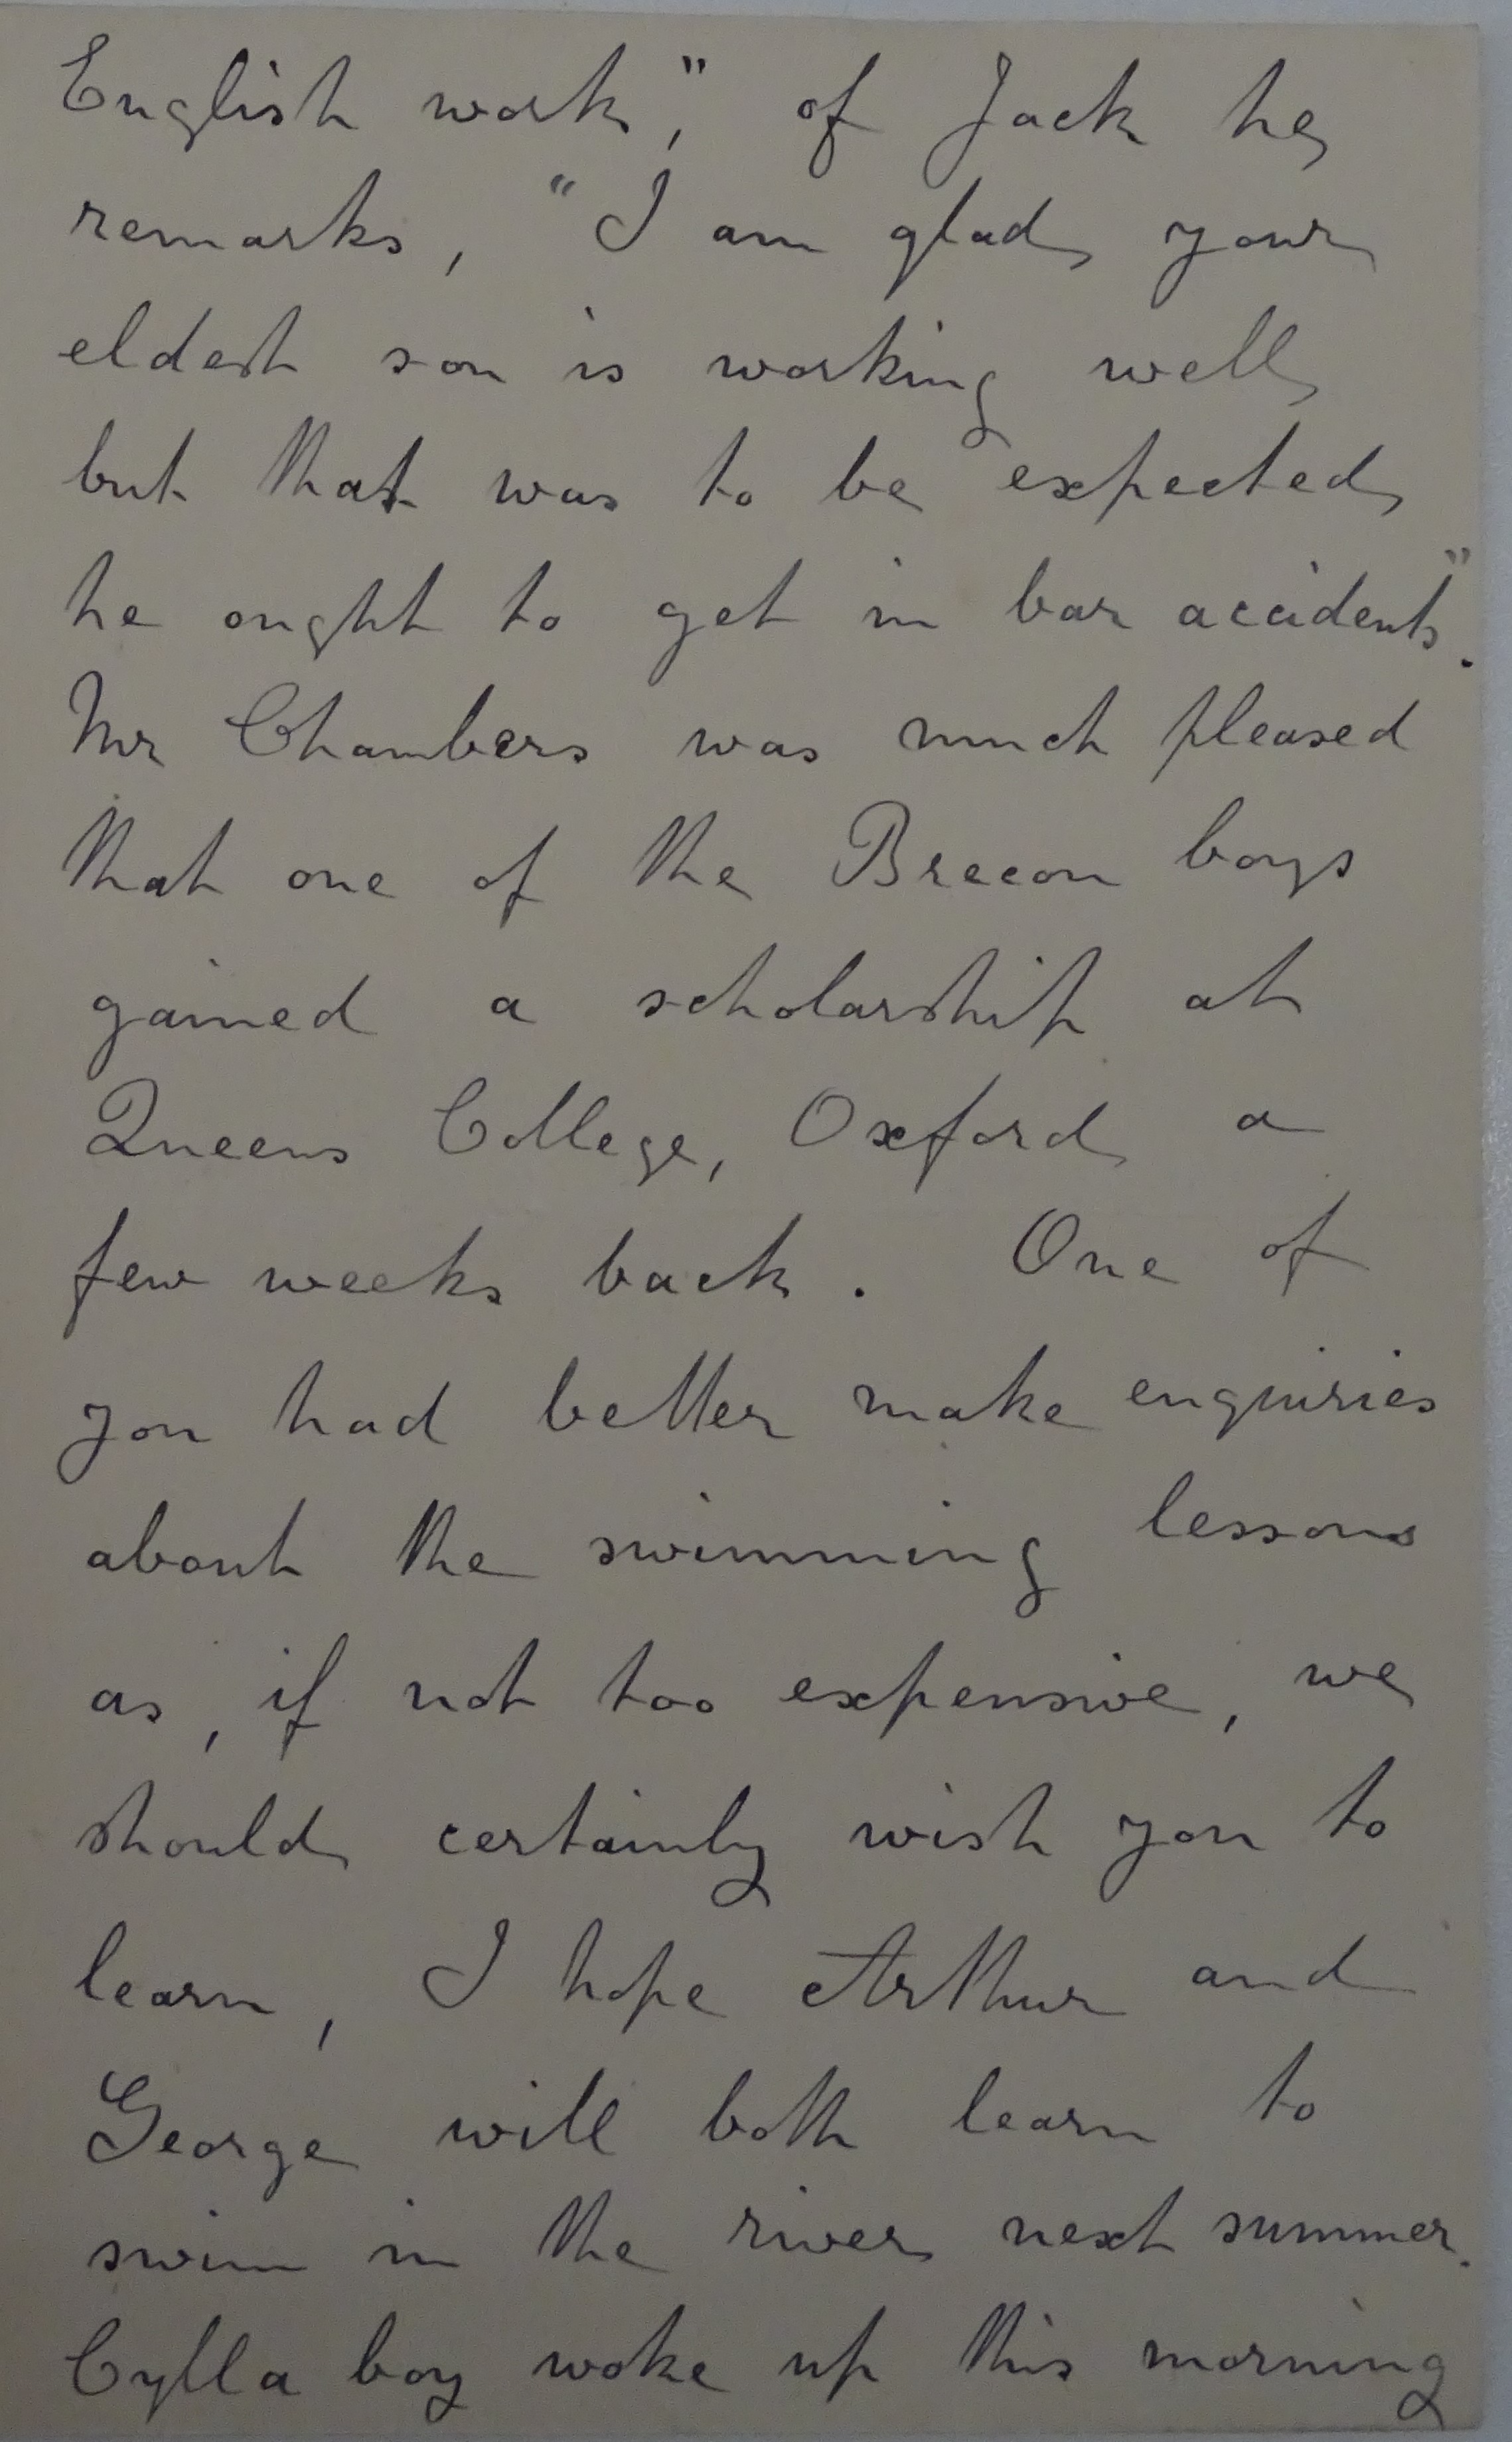 English work," of Jack he
remarks, "I am glad your
eldest son is working well
but that was to be expected
he ought to get in bar accidents".
Mr Chambers was much pleased
that one of the Brecon boys
gained a scholarship at
Queens College, Oxford a
few weeks back. One of
you had better make enquiries
about the swimming lessons
as, if not too expensive, we
should certainly wish you to
learn, I hope Arthur and
George will both learn to
swim in the river next summer.
Cylla boy woke up this morning